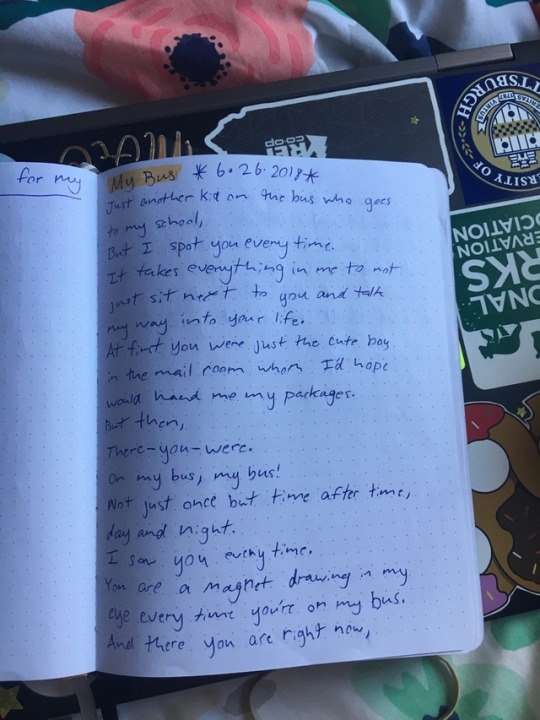 for my
My Bus * 6.26.2018*
Just another kid on the bus who goes
to my school,
But I spot you every time.
It takes everything in me to not
just sit next to you and talk
my way into your life.
At first you were just the cute boy
in the mail room whom I'd hope
would hand me my packages.
But then,
There-you-were.
On my bus, my bus!
Not just once but time after time,
day and night.
I saw you every time.
You are a magnet drawing in my
eye every time you're on my bus.
And there you are right now,
REI
co-op
ERSITY OF
TTSBURGH
ONAL
RKS
ERVATION
CIATION